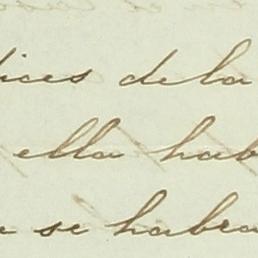 ices de la
ella hab
se habra